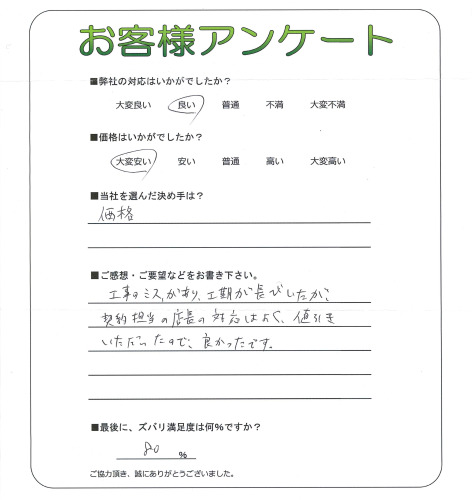 お客様アンケート
■弊社の対応はいかがでしたか？
大変良い 良い 普通 不満 大変不満
■価格はいかがでしたか？
大変安い 安い 普通 高い 大変高い
■当社を選んだ決め手は？
価格
■ご感想・ご要望などをお書き下さい。
工事のミスがあり、工期が長びしたが、
契約担当の店長の対応はよく、値引き
いただいたので、良かったです。
■最後に、ズバリ満足度は何%ですか？
80 %
ご協力頂き、誠にありがとうございました。